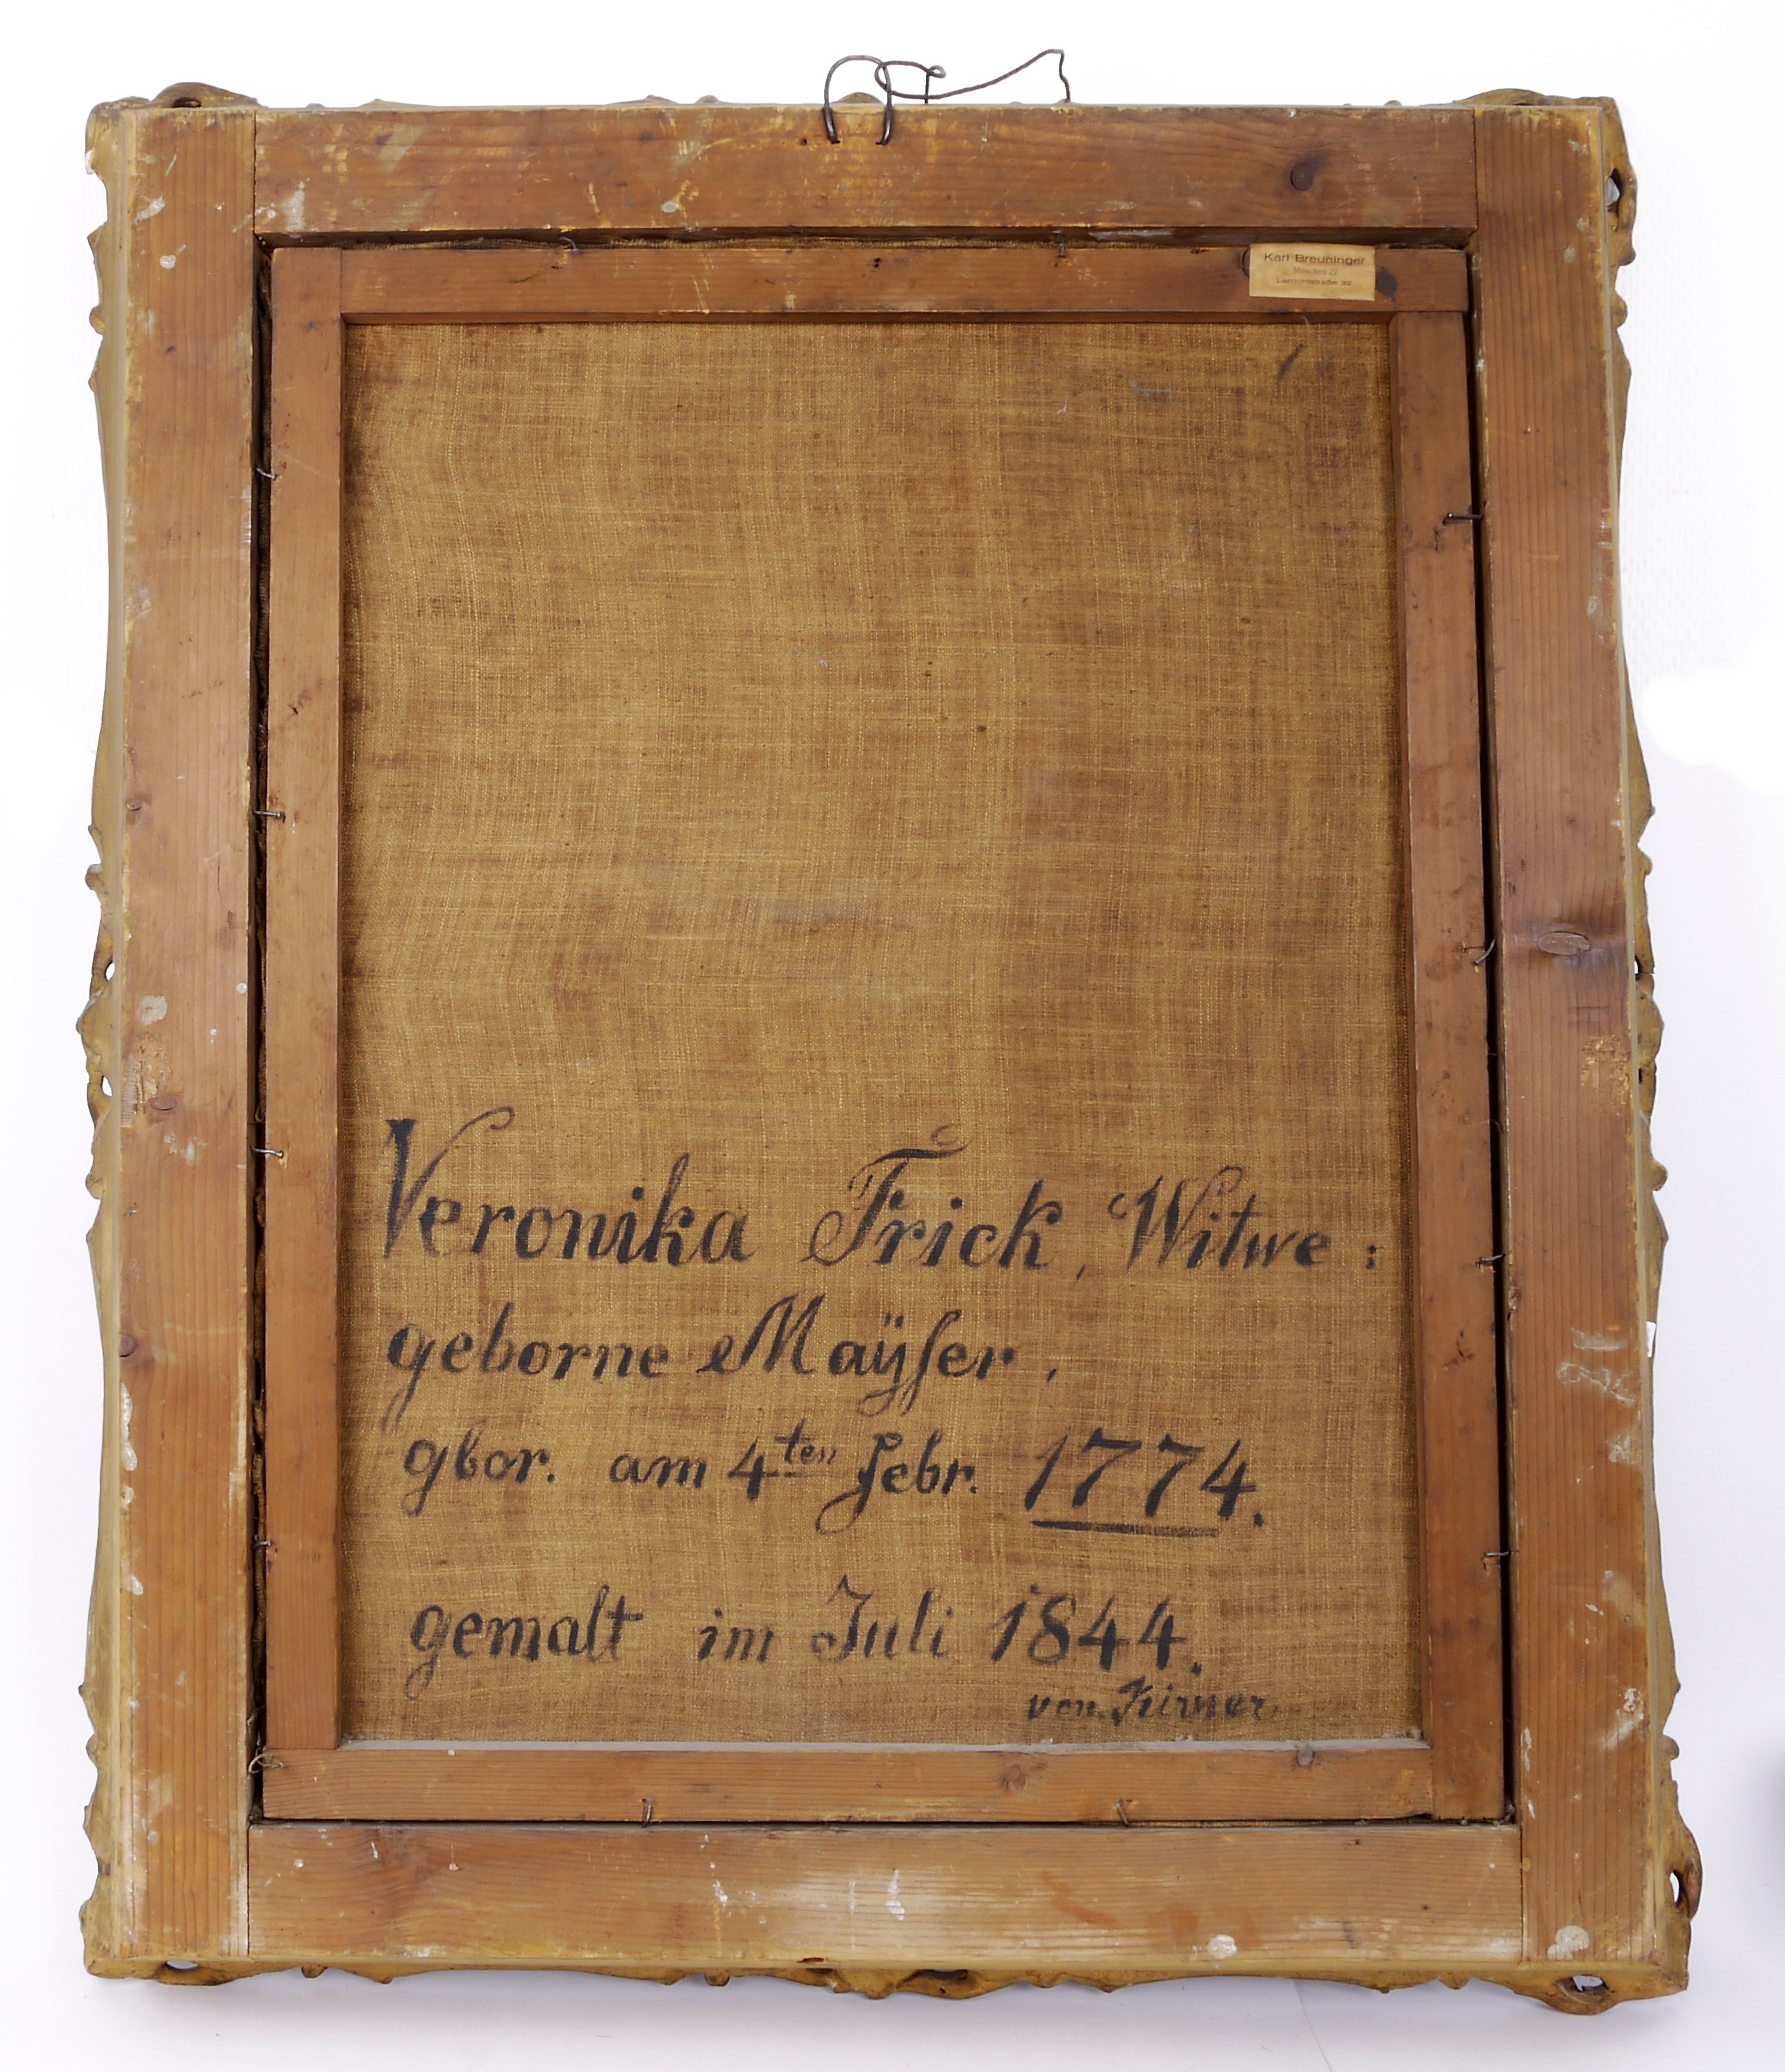 Karl Breuninger
München 22
Veronika Frick, Witwe :
geborne Maÿſer.
gbor. am 4ten Febr. 1774.
gemalt im Juli 1844.
von Kirner.